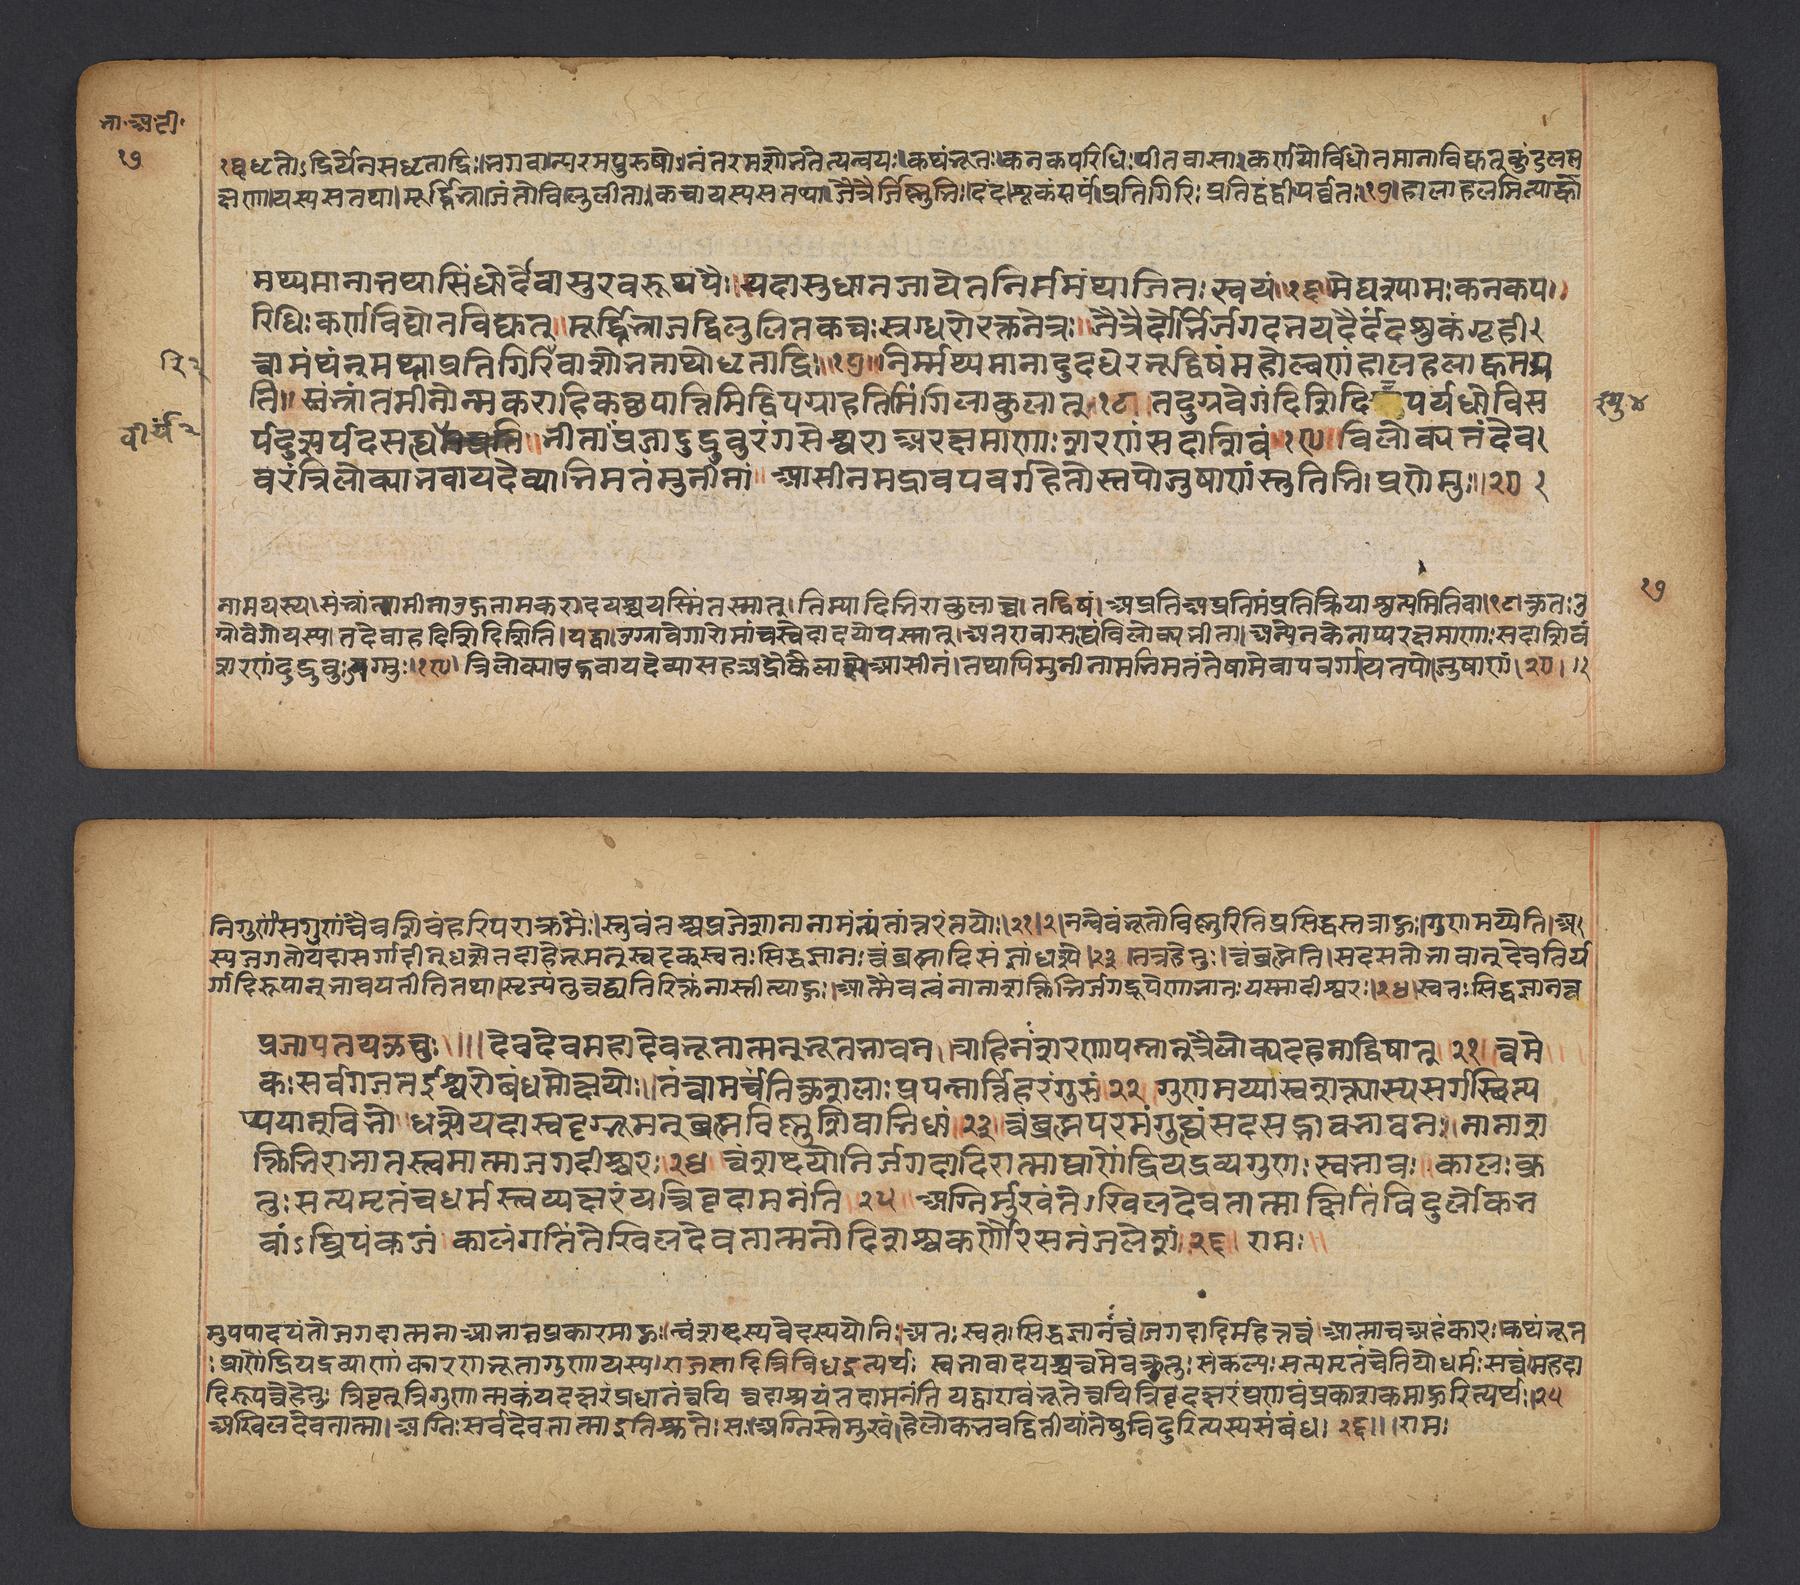 भा॰अ॰टी॰
१७
१६धृतोऽद्रिर्येनसधृताद्रिः।भगवान्परमपुरुषो।नंतरमशोभतेत्यन्वयः।कथंभूतः।कनकपरिधिःपीतवासाः।कर्णयोर्विद्योतमानाविद्युत्कुंडलल
क्षणायस्यसतथा।मूर्द्ध्निभ्राजंतोविलुलिताःकचायस्यसतथा।जैत्रैर्जिष्णुभिः।दंदशूकंसर्पं।प्रतिगिरिःप्रतिद्वंद्वीपर्वतः।१७।हालाहलमित्याह्वा
मथ्यमानात्तथासिंधोर्देवासुरवरूथपैः॥यदासुधानजायेतनिर्ममंथाजितःस्वयं॥१६॥मेघश्यामःकनकप॥
रिधिःकर्णविद्योतविद्युत्॥मूर्द्ध्निभ्राजद्विलुलितकचःस्रग्धरोरक्तनेत्रः॥जैत्रैर्दोर्भिर्जगदभयदैर्दंदशूकंगृही२
त्वामथ्नंन्मथ्नाप्रतिगिरिरिवाशोभताथोधृताद्रिः॥१७॥निर्मथ्यमानादुदधेरभूद्विषंमहोल्बणंहालहलाह्वमग्र
रि२
तः॥संभ्रांतमीनोन्मकराहिकच्छपात्तिमिद्विपग्राहतिमिंगिलाकुलात्॥१८॥तदुग्रवेगंदिशिदिश्युपर्यधोविस
स्यु४
र्पदुत्सर्पदसह्यमप्रति॥भीताःप्रजादुद्रुवुरंगसेश्वराअरक्ष्यमाणाःशरणंसदाशिवं॥१९॥विलोक्यतंदेव।
वीर्य२
वरंत्रिलोक्याभवायदेव्याभिमतंमुनीनां॥आसीनमद्रावपवर्गहेतोस्तपोजुषाणंस्तुतिभिःप्रणेमुः॥२०२
नामयस्य।संभ्रांताश्चमीनाउद्गतामकरादयश्चयस्मिंतस्मात्।तिम्यादिभिराकुलाच्च।तद्विषं।अप्रतिअप्रतिमंप्रतिक्रियाशून्यमितिवा।१८।कुतःउ
१७
ग्रोवेगोयस्य।तदेवाहदिशिदिशिति।यद्वा।उग्रावेगारोमांचस्वेदादयोयस्मात्।अतएवासह्यंविलोक्यभीताः।अन्येनकेनाप्यरक्ष्यमाणाःसदाशिवं
शरणंदुद्रुवुःजग्मुः।१९।त्रिलोक्याःउद्भवायदेव्यासहअद्रौकैलासे।आसीनं।तथापिमुनीनामभिमतंतेषामेवापवर्गायतपोजुषाणं।२०।॥२
निर्गुणंसगुणंचैवशिवंहरिपराक्रमैः।स्तुवंतश्चप्रजेशानानामंन्यंतांतरंतयोः।२१।२।नन्वेवंभूतोविष्णुरितिप्रसिद्धस्तत्राहुः।गुणमय्येति।अ२
स्यजगतोयदासर्गादीन्धत्सेतदाहेभूमन्स्वदृक्स्वतःसिद्धज्ञानःत्वंब्रह्मादिसंज्ञांधत्से।२३।तत्रहेतुः।त्वंब्रह्मेति।सदसतोभावान्देवतिर्य
र्गादिरूपान्भावयतीतितथा।सृज्यंतुत्वद्व्यतिरिक्तंनास्तीत्याहुः।आत्मैवत्वंनानाशक्तिभिर्जगद्रूपेणाभातःयस्मादीश्वरः।२४।स्वतःसिद्धज्ञानत्व
प्रजापतयऊचुः॥।।देवदेवमहादेवभूतात्मन्भूतभावन॥त्राहिनःशरणापन्नान्त्रैलोक्यदहनाद्विषात्॥२१॥त्वमे
कःसर्वगजतईश्वरोबंधमोक्षयोः॥तंत्वामर्चंतिकुशलाःप्रपन्नार्त्तिहरंगुरुं॥२२॥गुणमय्यास्वशक्त्यास्यसर्गस्थित्य
प्ययान्विभो॥धत्सेयदास्वदृग्भूमन्ब्रह्मविष्णुशिवाभिधां॥२३॥त्वंब्रह्मपरमंगुह्यंसदसद्भावभावनः॥नानाश
क्तिभिराभातस्त्वमात्माजगदीश्वरः॥२४॥त्वंशब्दयोनिर्जगदादिरात्माप्राणेंद्रियद्रव्यगुणःस्वभावः॥कालःक्र
तुःसत्यमृतंचधर्मस्त्वय्यक्षरंयत्त्रिवृदामनंति॥२५॥अग्निर्मुखंतेऽखिलदेवतात्माक्षितिंविदुर्लोकभ
वांऽघ्रिपंकजं॥कालंगतिंतेखिलदेवतात्मनोदिशश्चकर्णौरसनंजलेशं॥२६॥रामः॥
मुपपादयंतोजगदात्मनाआभानप्रकारमाहुः।त्वंशब्दस्यवेदस्ययोनिः।अतःस्वतःसिद्धज्ञानंत्वं।जगदादिर्महत्तत्वं।आत्माचअहंकारः।कथंभूत
ःप्राणेंद्रियद्रव्याणांकारणभूतागुणायस्य।राजसादित्रिविधइत्यर्थः।स्वभावादयश्चत्वमेवक्रतुःसंकल्पःसत्यमृतंचेतियोधर्मःसत्वं।महदा
दिरूपत्वेहेतुः।त्रिवृत्त्रिगुणात्मकंयदक्षरंप्रधानंत्वयित्वदाश्रयंतदामनंतियद्वाएवंभूतेत्वयित्रिवृदक्षरंप्रणवंप्रकाशकमाहुरित्यर्थः।२५
अखिलदेवतात्मा।अग्निःसर्वदेवतात्माइतिश्रुतेः।सःअग्निस्तेमुखं।हेलोकभवद्वितीयांतेषुविदुरित्यस्यसंबंधः।२६॥।रामः